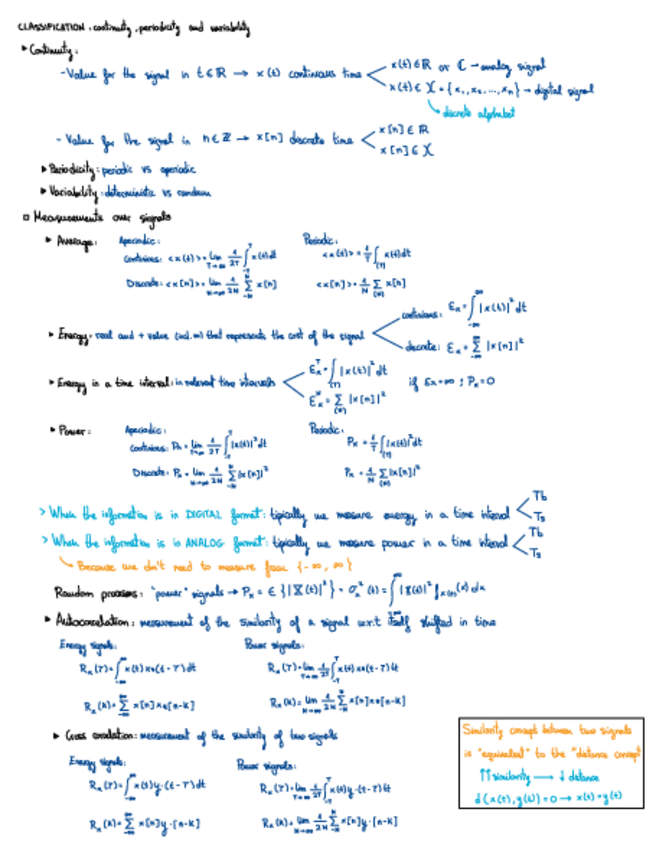 CLASSIFICATION: continuity, periodicity and variability
▸ Continuity:
- Value for the signal in t ∈ ℝ → x(t) continuous time
x(t) ∈ ℝ or ℂ → analog signal
x(t) ∈ X = {x₁, x₂, ..., xₙ} → digital signal
discrete alphabet
- Value for the signal in n ∈ ℤ → x[n] discrete time
x[n] ∈ ℝ
x[n] ∈ X
▸ Periodicity: periodic vs aperiodic
▸ Variability: deterministic vs random
□ Measurements over signals
▸ Average: Aperiodic: Periodic:
Continuous: <x(t)> = lim T→∞ 1/2T ∫_-T^T x(t)dt <x(t)> = 1/T ∫_(T) x(t)dt
Discrete: <x[n]> = lim N→∞ 1/2N Σ_-N^N x[n] <x[n]> = 1/N Σ_(N) x[n]
▸ Energy = real and + value that represents the cost of the signal
continuous: Ex = ∫_-∞^∞ |x(t)|² dt
discrete: Ex = Σ_-∞^∞ |x[n]|²
▸ Energy in a time interval: in relevant time intervals
Ex^T = ∫_(T) |x(t)|² dt
Ex^N = Σ_(N) |x[n]|²
if Ex=∞ ; Px=0
▸ Power: Aperiodic: Periodic:
Continuous: Px = lim T→∞ 1/2T ∫_-T^T |x(t)|² dt Px = 1/T ∫_(T) |x(t)|² dt
Discrete: Px = lim N→∞ 1/2N Σ_-N^N |x[n]|² Px = 1/N Σ_(N) |x[n]|²
> When the information is in DIGITAL format: tipically we measure energy in a time interval
Tb
Ts
> When the information is in ANALOG format: tipically we measure power in a time interval
Tb
Ts
Because we don't need to measure from {-∞, ∞}
Random processes: "power" signals → Px = E{|X(t)|²} = σx²(t) = ∫_-∞^∞ |X(t)|² f_x(t)(x) dx
▸ Autocorrelation: measurement of the similarity of a signal w.r.t itself shifted in time
Energy signals: Power signals:
Rx(τ) = ∫_-∞^∞ x(t)x*(t-τ)dt Rx(τ) = lim T→∞ 1/2T ∫_-T^T x(t)x*(t-τ)dt
Rx(k) = Σ_-∞^∞ x[n]x*[n-k] Rx(k) = lim N→∞ 1/2N Σ_-N^N x[n]x*[n-k]
▸ Cross correlation: measurement of the similarity of two signals
Energy signals: Power signals:
Rx(τ) = ∫_-∞^∞ x(t)y*(t-τ)dt Rx(τ) = lim T→∞ 1/2T ∫_-T^T x(t)y*(t-τ)dt
Rx(k) = Σ_-∞^∞ x[n]y*[n-k] Rx(k) = lim N→∞ 1/2N Σ_-N^N x[n]y*[n-k]
Similarity concept between two signals
is "equivalent" to the "distance concept
↑↑ similarity → ↓ distance
d(x(t), y(t)) = 0 → x(t) = y(t)